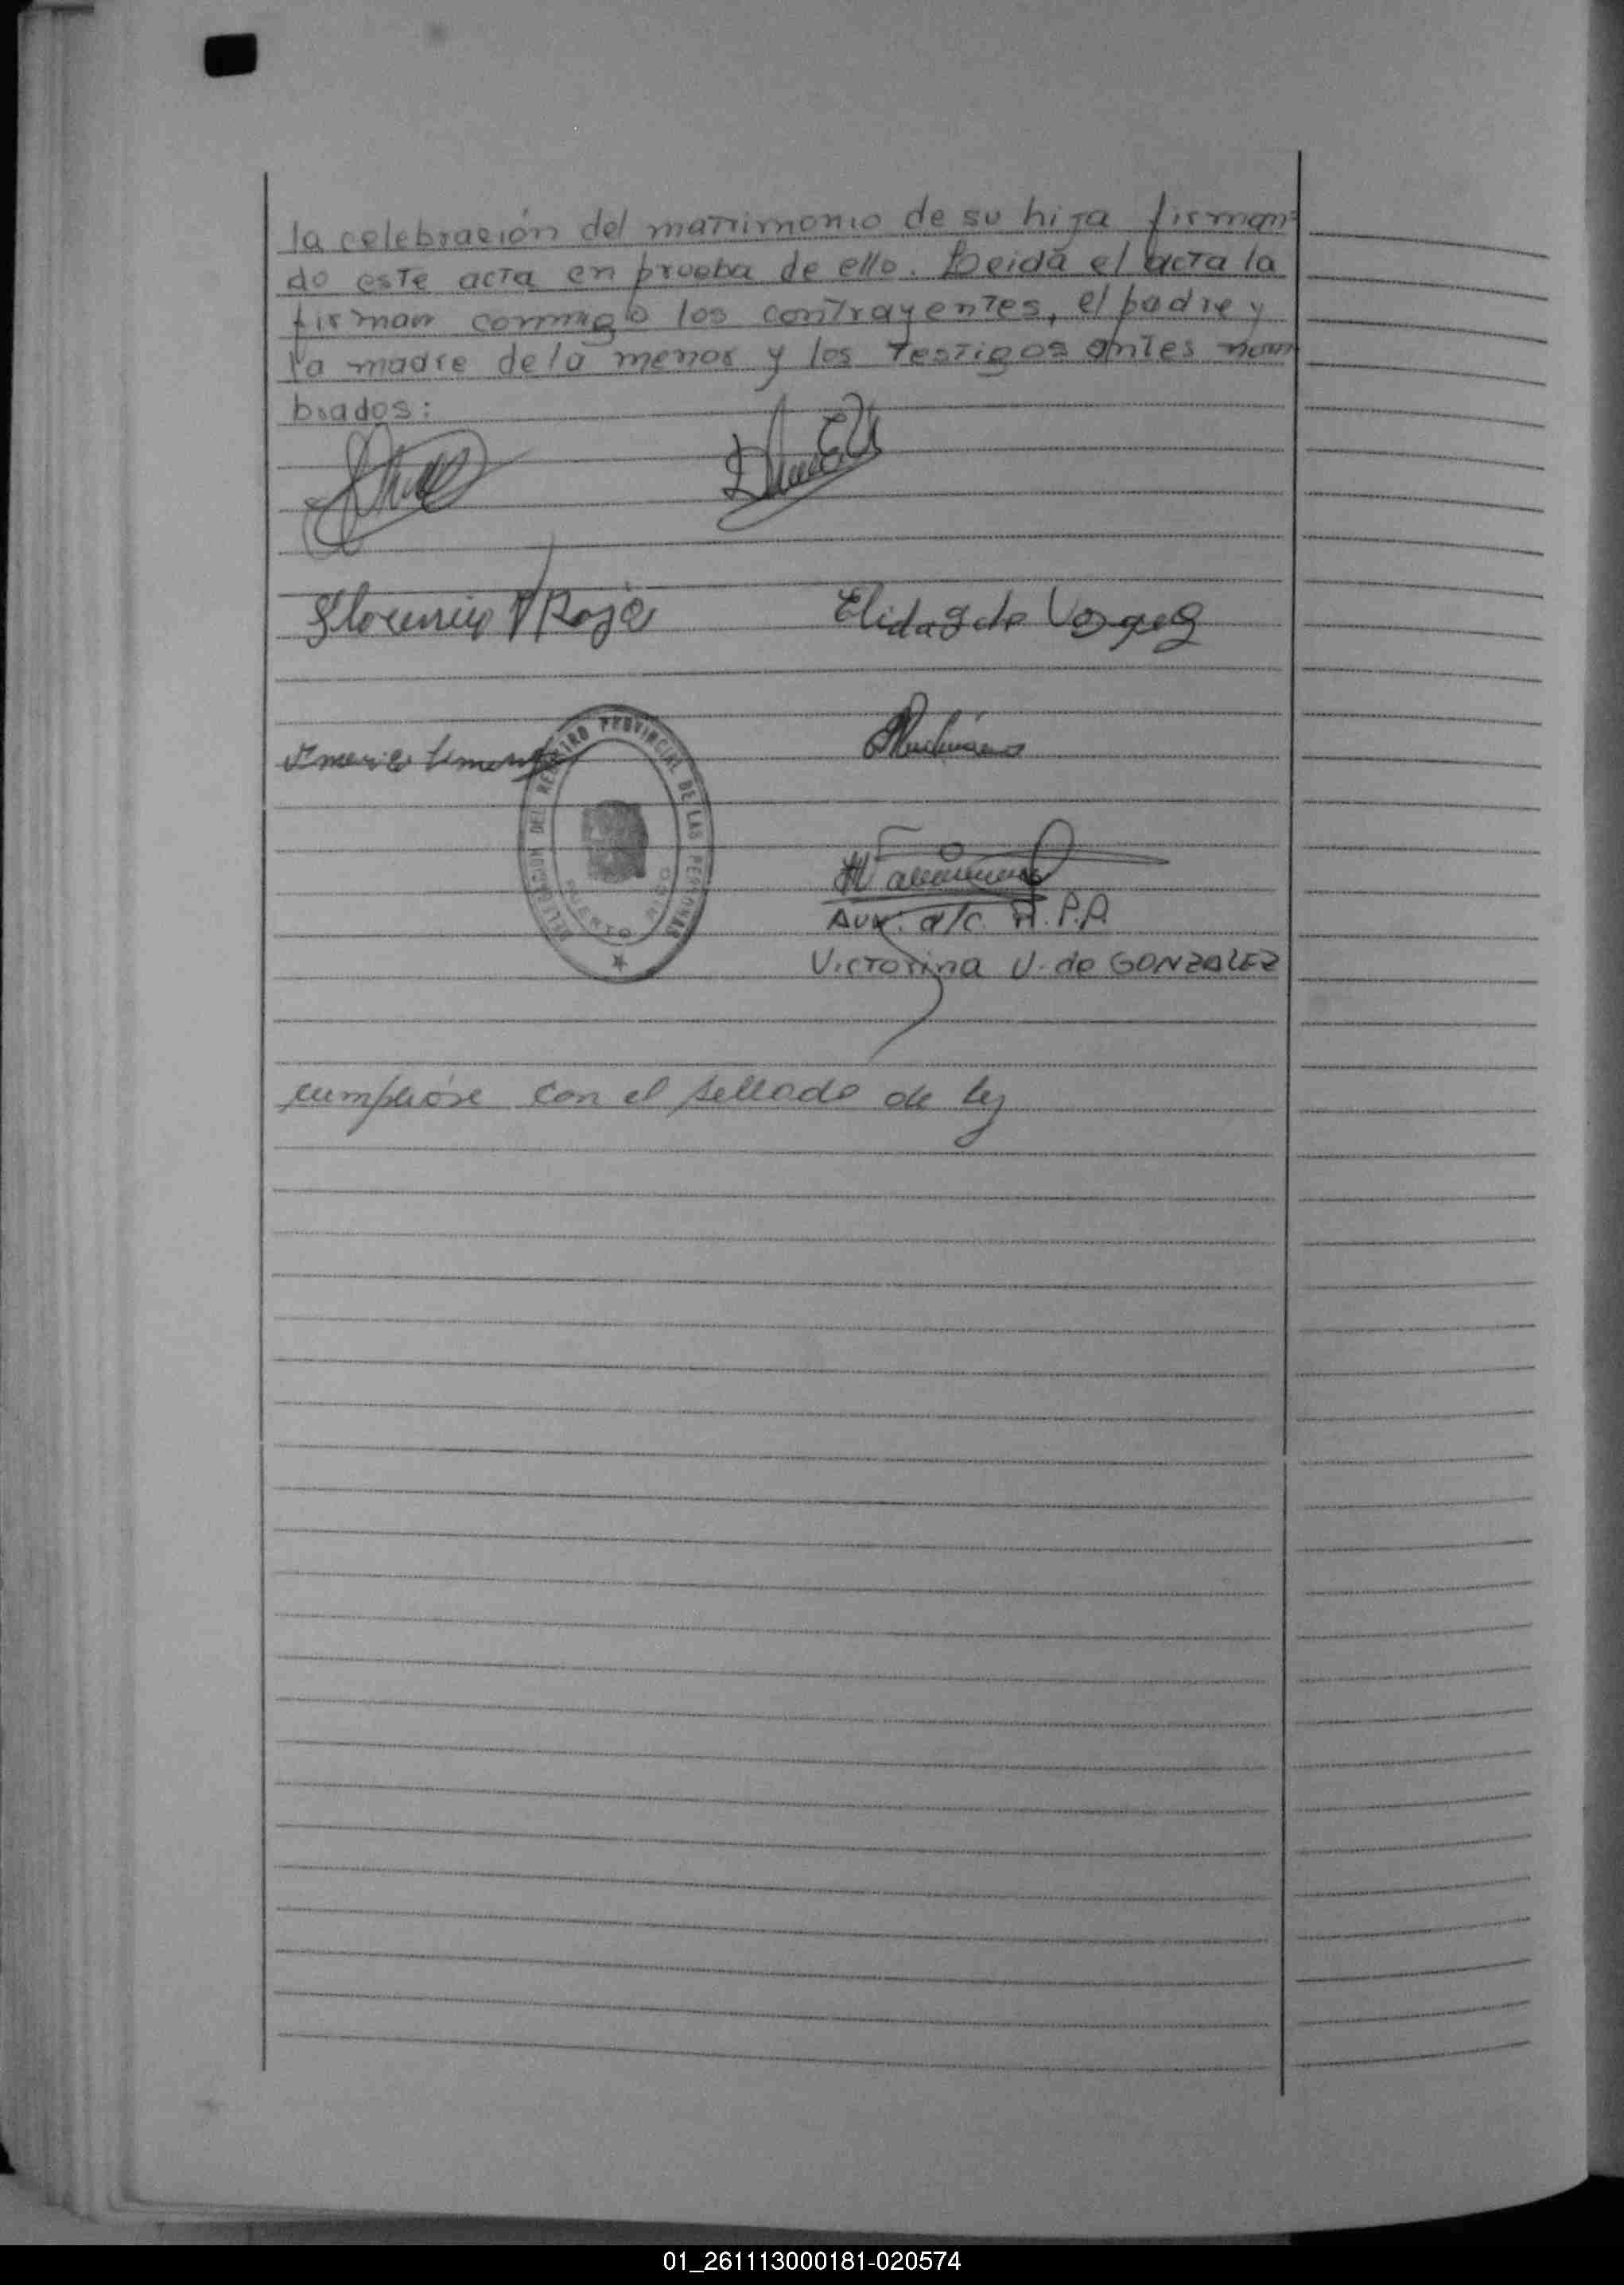 la celebración del matrimonio de su hija firman=
do este acta en prueba de ello. Leida el acta la
firman conmigo los contrayentes, el padre y
la madre de la menor y los testigos antes nom
brados:
Elida G de
DELEGACION DEL REGISTRO PROVINCIAL DE LAS PERSONAS
PUERTO RICO
Aux. a/c. R.P.P
Victorina V. de GONZALEZ
cumplióse con el sellado de ley
01_261113000181-020574